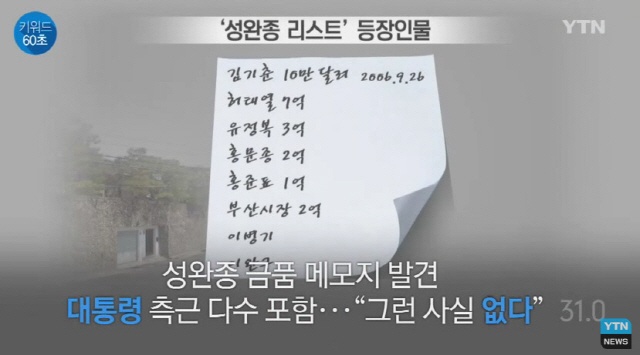 키워드
60초
'성완종 리스트' 등장인물
YTN
김기춘 10만 달러 2006.9.26
허태열 7억
유정복 3억
홍문종 2억
홍준표 1억
부산시장 2억
이병기
성완종 금품 메모지 발견
대통령 측근 다수 포함···“그런 사실 없다”
31.0
YTN
NEWS